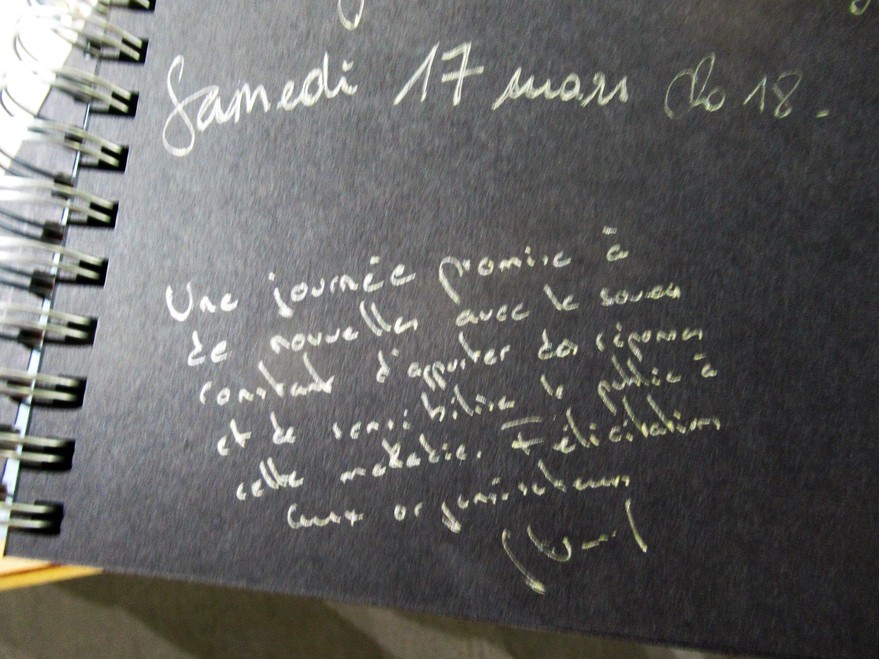 Samedi 17 mars 2018.
Une journée promise à
de nouvelles avec le souci
constant d'apporter des réponses
et de sensibiliser le public à
cette maladie. Félicitations
aux organisateurs